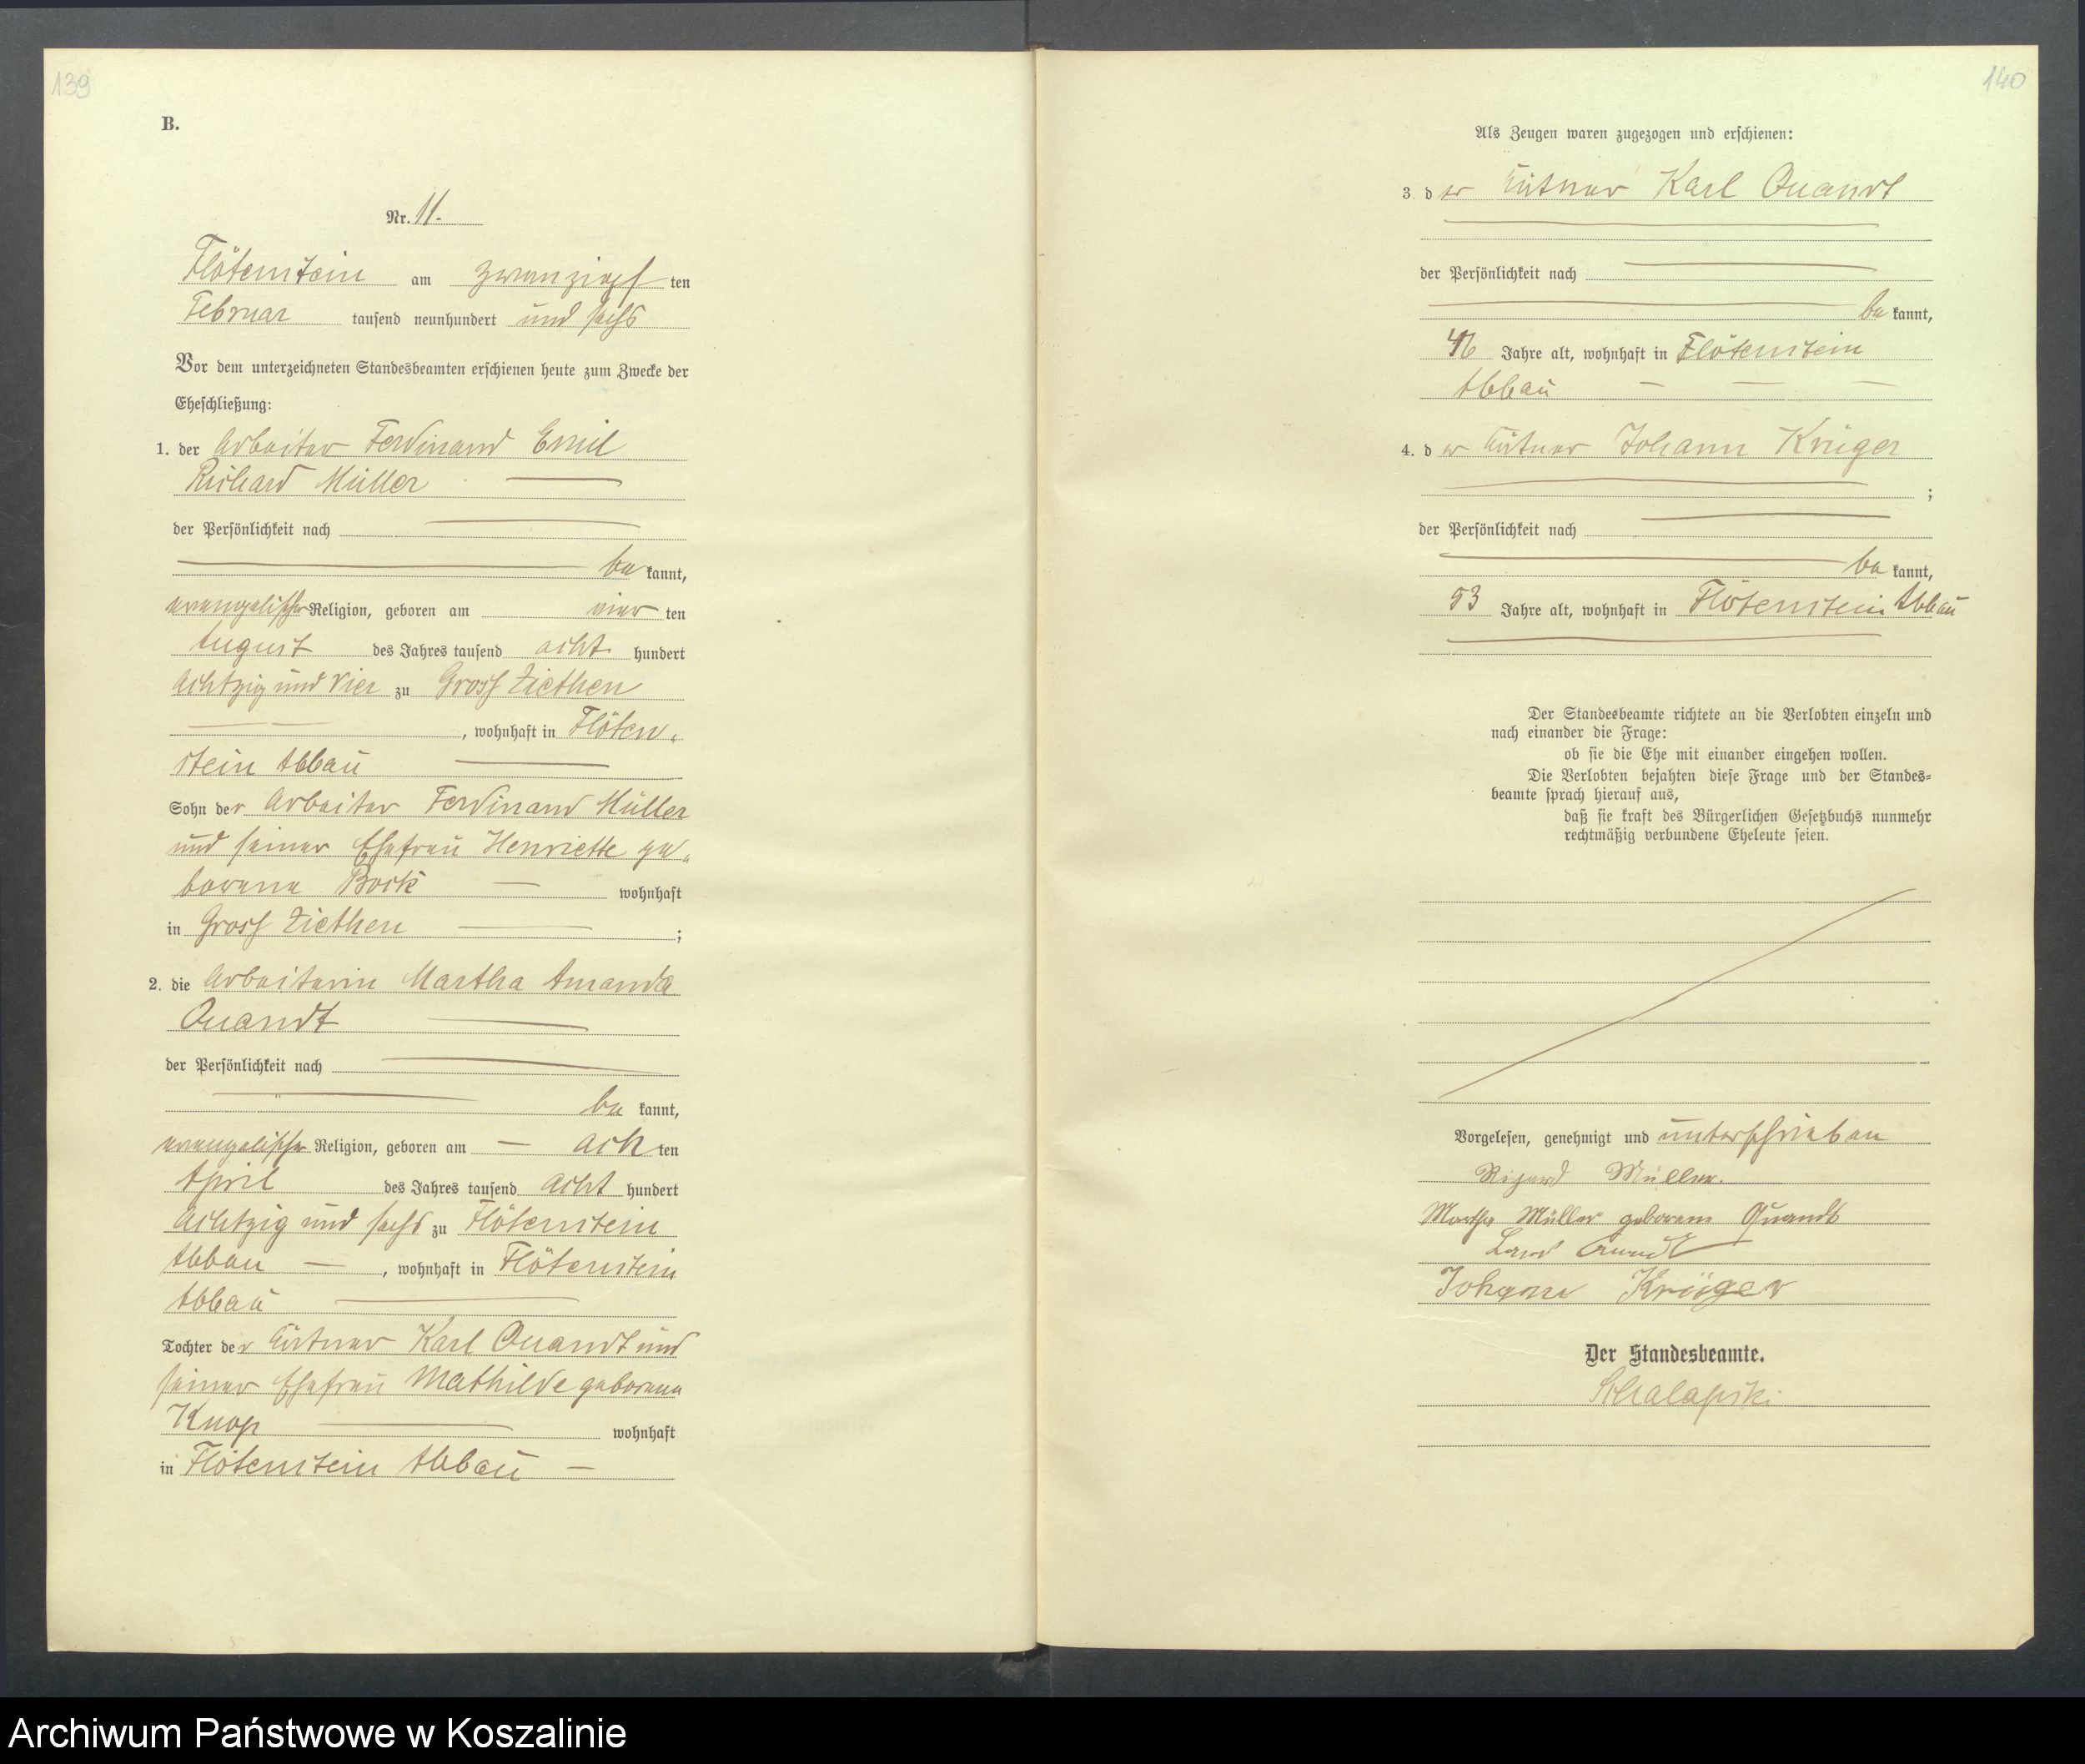 139
B.
Nr. 11.
Flötenstein am zwanzigsten
Februar tausend neunhundert und sechs
Vor dem unterzeichneten Standesbeamten erschienen heute zum Zwecke der
Eheschließung:
1. der Arbeiter Ferdinand Emil
Richard Müller
der Persönlichkeit nach
be kannt,
evangelischer Religion, geboren am vier ten
August des Jahres tausend acht hundert
achtzig und vier zu Gross Ziethen
, wohnhaft in Flöten-
stein Abbau
Sohn der Arbeiter Ferdinand Müller
und seiner Ehefrau Henriette ge-
borene Bock wohnhaft
in Gross Ziethen ;
2. die Arbeiterin Martha Amanda
Quandt
der Persönlichkeit nach
be kannt,
evangelischer Religion, geboren am ach ten
April des Jahres tausend acht hundert
achtzig und sechs zu Flötenstein
Abbau , wohnhaft in Flötenstein
Abbau
Tochter der Karl Quandt und
seiner Ehefrau Mathilde geborene
Knop wohnhaft
in Flötenstein Abbau
140
Als Zeugen waren zugezogen und erschienen:
3. d er Karl Quandt
der Persönlichkeit nach
be kannt,
46 Jahre alt, wohnhaft in Flötenstein
Abbau
4. d er Johann Krüger
;
der Persönlichkeit nach
be kannt,
53 Jahre alt, wohnhaft in Flötenstein Abbau
Der Standesbeamte richtete an die Verlobten einzeln und
nach einander die Frage:
ob sie die Ehe mit einander eingehen wollen.
Die Verlobten bejahten diese Frage und der Standes-
beamte sprach hierauf aus,
daß sie kraft des Bürgerlichen Gesetzbuchs nunmehr
rechtmäßig verbundene Eheleute seien.
Vorgelesen, genehmigt und unterschrieben
Müller.
Martha Müller geborene Quandt
Quandt
Johann Krüger
Der Standesbeamte.
Archiwum Państwowe w Koszalinie